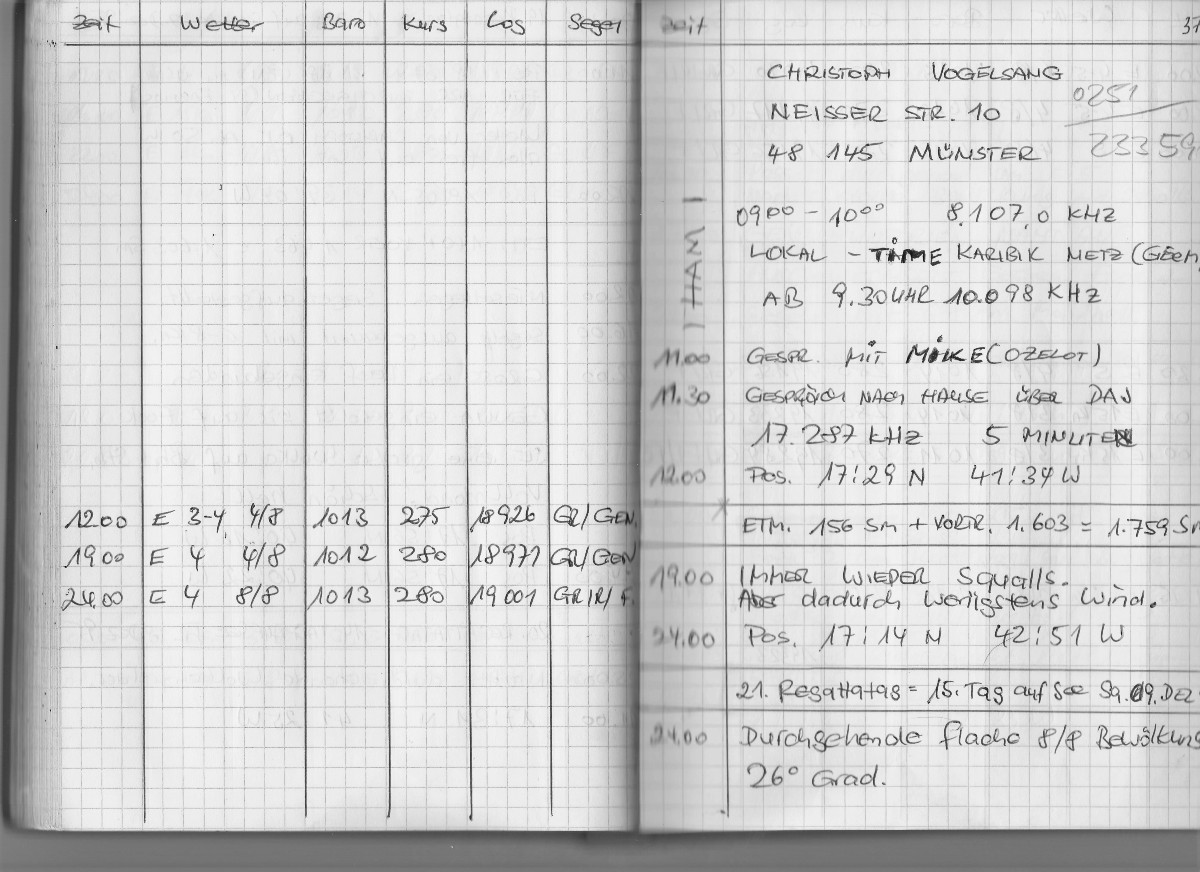 Zeit Wetter Baro Kurs Log Segel
1200 E 3-4 4/8 1013 275 18926 GR/GEN.
1900 E 4 4/8 1012 280 18971 GR/GEN
24.00 E 4 8/8 1013 280 19001 GR/R/F.
Zeit 37
CHRISTOPH VOGELSANG
0251
NEISSER STR. 10
48 145 MÜNSTER 23359
HAM
0900 - 1000 8.107,0 KHZ
LOKAL - TIME KARIBIK METZ (GEEH
AB 9.30 UHR 10.098 KHZ
11.00 GESPR. MIT MIKE (OZELOT)
11.30 GESPRÄCH NACH HAUSE ÜBER DAJ
17.287 KHZ 5 MINUTEN
12.00 POS. 17:29 N 41:34 W
ETM. 156 Sm + VORTR. 1.603 = 1.759 Sm
19.00 IMMER WIEDER Squalls.
Aber dadurch wenigstens Wind.
24.00 POS. 17:14 N 42:51 W
21. Regattatag = 15. Tag auf See Sa. 09. DEZ
24.00 Durchgehende flache 8/8 Bewölkung
26° Grad.